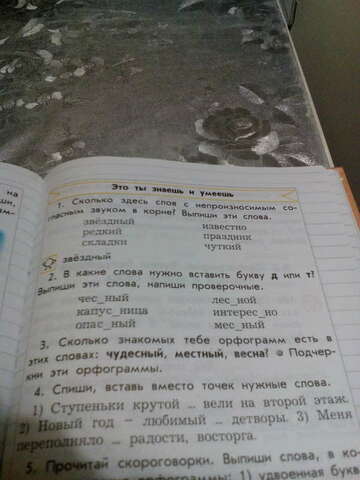 на
ши,
ям-
Это ты знаешь и умеешь
1. Сколько здесь слов с непроизносимым со-
гласным звуком в корне? Выпиши эти слова.
звёздный известно
редкий праздник
складки чуткий
звёздный
2. В какие слова нужно вставить букву д или т?
Выпиши эти слова, напиши проверочные.
чес_ный лес_ной
капус_ница интерес_но
опас_ный мес_ный
3. Сколько знакомых тебе орфограмм есть в
этих словах: чудесный, местный, весна? Подчер-
кни эти орфограммы.
4. Спиши, вставь вместо точек нужные слова.
1) Ступеньки крутой ... вели на второй этаж.
2) Новый год – любимый ... детворы. 3) Меня
переполняло ... радости, восторга.
5. Прочитай скороговорки. Выпиши слова, в ко-
орфограммы: 1) удвоенная букв